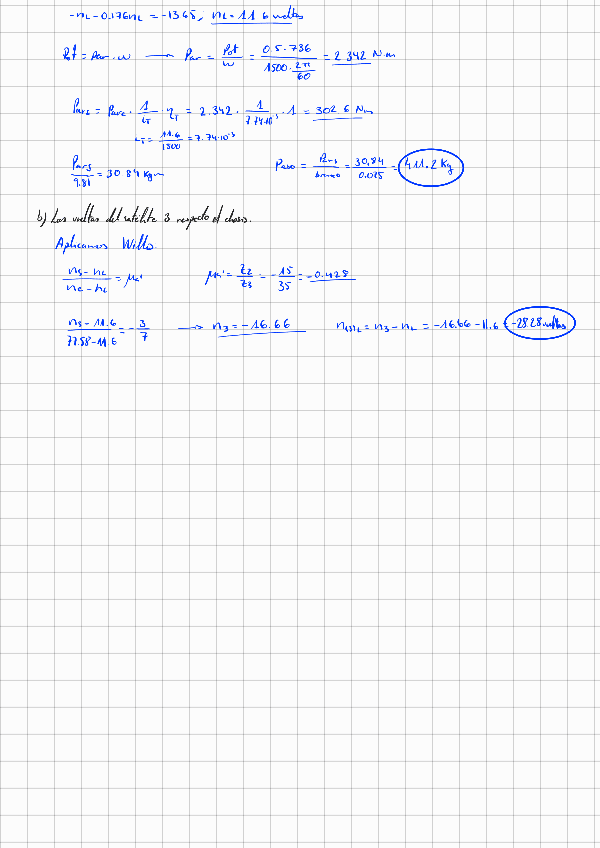 -nL - 0.176nL = -13.65; nL = 11.6 vueltas
Pot = Par · w → Par = Pot/w = 0.5 · 736 / (1500 · 2π/60) = 2.342 N·m
Pars = Pare · 1/iT · ηT = 2.342 · 1/7.74·10⁻³ · 1 = 302.6 Nm
iT = 11.6/1500 = 7.74·10⁻³
Pars/9.81 = 30.84 Kgm Peso = Pars/brazo = 30.84/0.075 = 411.2 Kg
b) Las vueltas del satelite 3 respecto el chasis.
Aplicamos Willis.
(ns - nL)/(ne - nL) = μc' μc' = Z2/Z3 = -15/35 = -0.428
(n3 - 11.6)/(77.58 - 11.6) = -3/7 → n3 = -16.66 n(3)L = n3 - nL = -16.66 - 11.6 = -28.28 vueltas